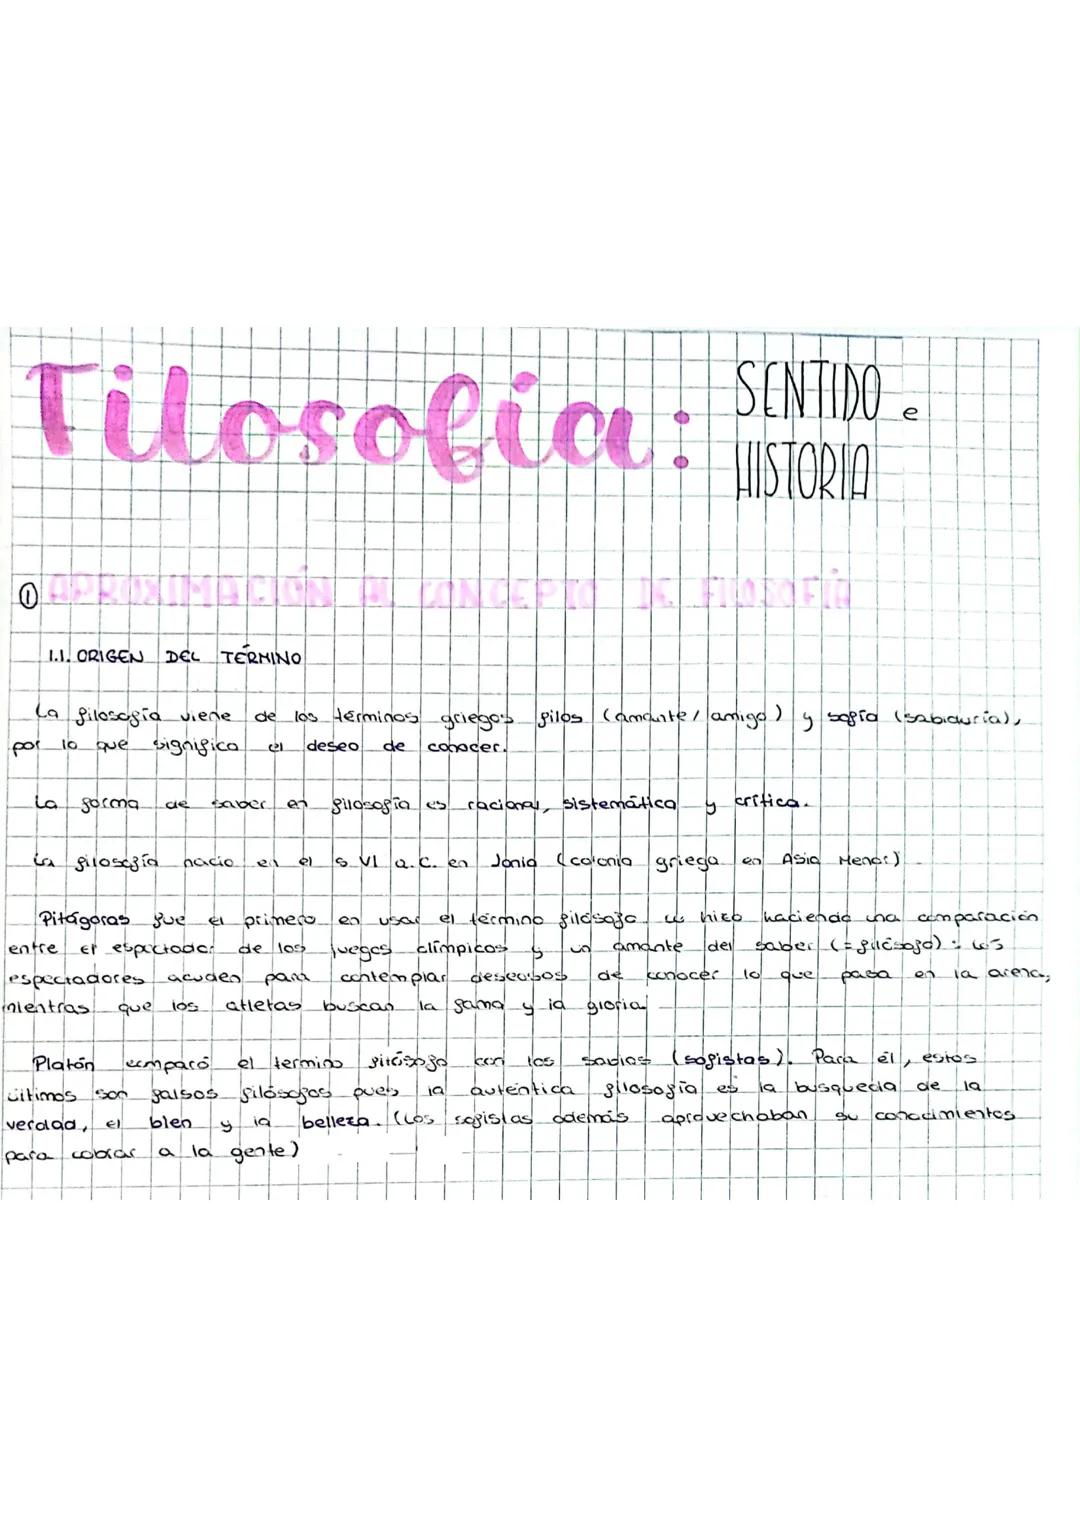 Filosofía: SENTIDO e
HISTORIA
① APROXIMACIÓN AL CONCEPTO DE FILOSOFÍA
1.1. ORIGEN DEL TÉRMINO
La filosofía viene de los términos griegos filos (amante/amigo) y sofía (sabiduría),
por lo que significa el deseo de conocer.
La forma de saber en filosofía es racional, sistemática y crítica.
La filosofía nacio en el s VI a.C. en Jonia (colonia griega en Asia Menor).
Pitágoras fue el primero en usar el término filósofo. Lo hizo haciendo una comparación
entre el espectador de los juegos olímpicos y un amante del saber (=filósofo): Los
espectadores acuden para contemplar deseosos de conocer lo que pasa en la arena,
mientras que los atletas buscan la fama y la gloria
Platón comparó el termino filósofo con los sabios (sofistas). Para él, estos
últimos son falsos filósofos pues la auténtica filosofía es la busqueda de la
verdad, el bien y la belleza. (Los sofistas además aprovechaban su conocimientos
para cobrar a la gente)